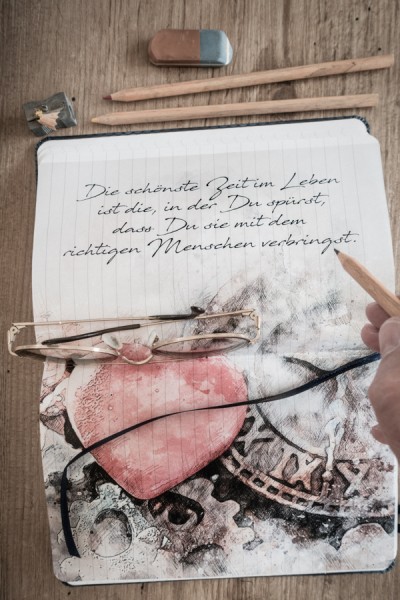 Die schönste Zeit im Leben
ist die, in der Du spürst,
dass Du sie mit dem
richtigen Menschen verbringst.
IX
X